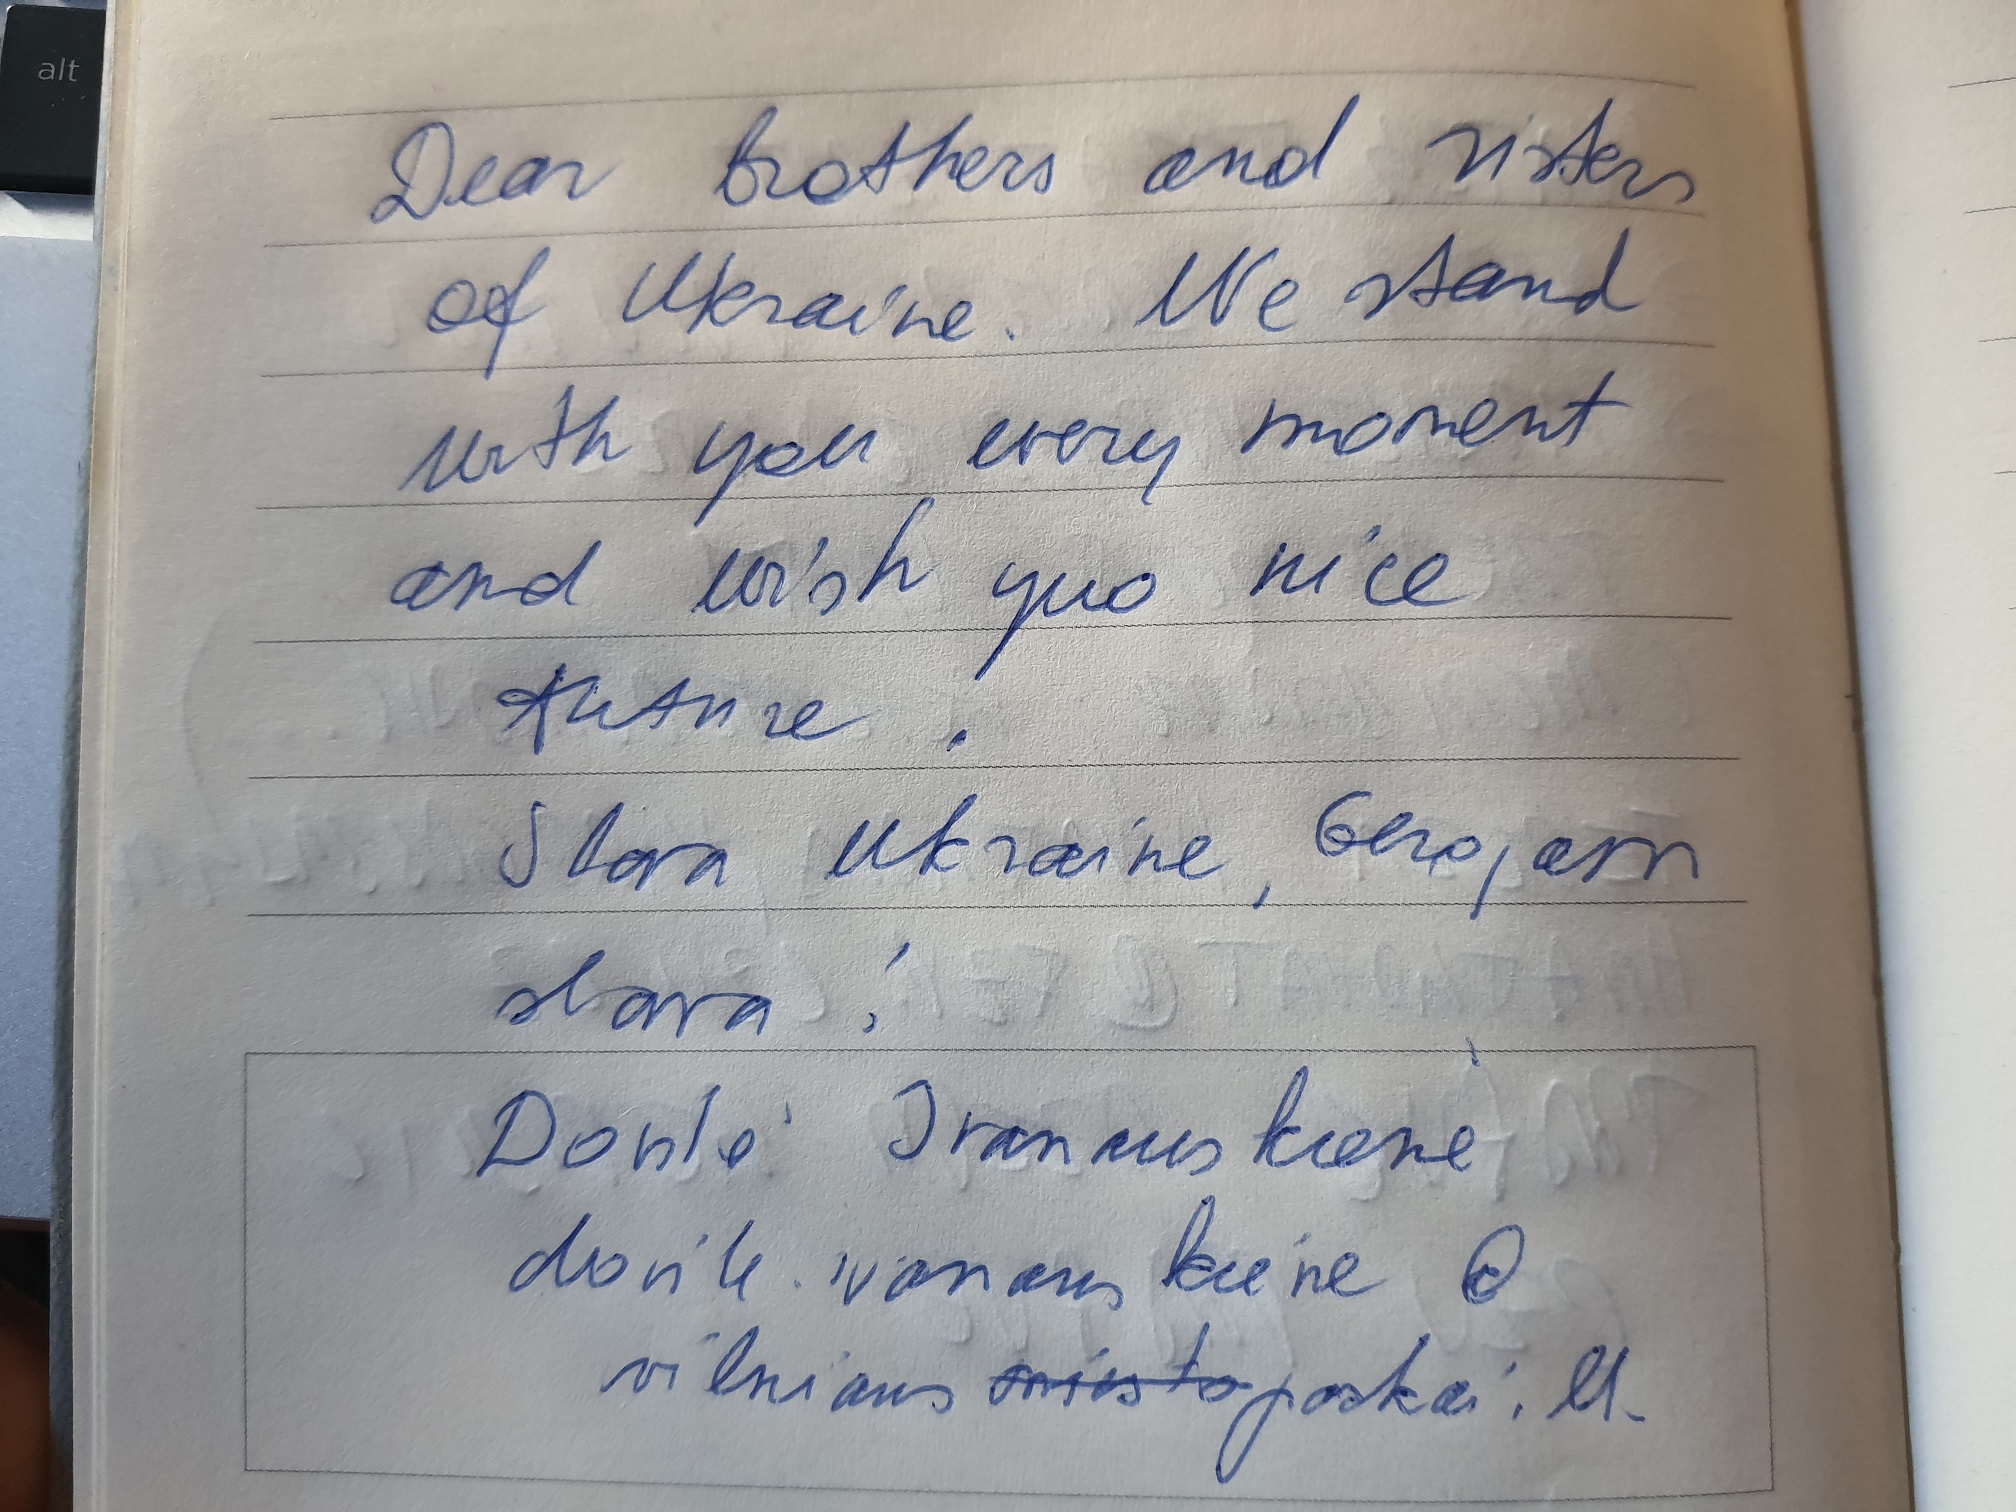 alt
Dear brothers and sisters
of Ukraine. We stand
with you every moment
and wish yuo nice
future.
Slava Ukraine, Gerojam
slava!
Dovilė Ivanauskienė
dovile.ivanauskiene@
vilniaus miesto parkai.lt.